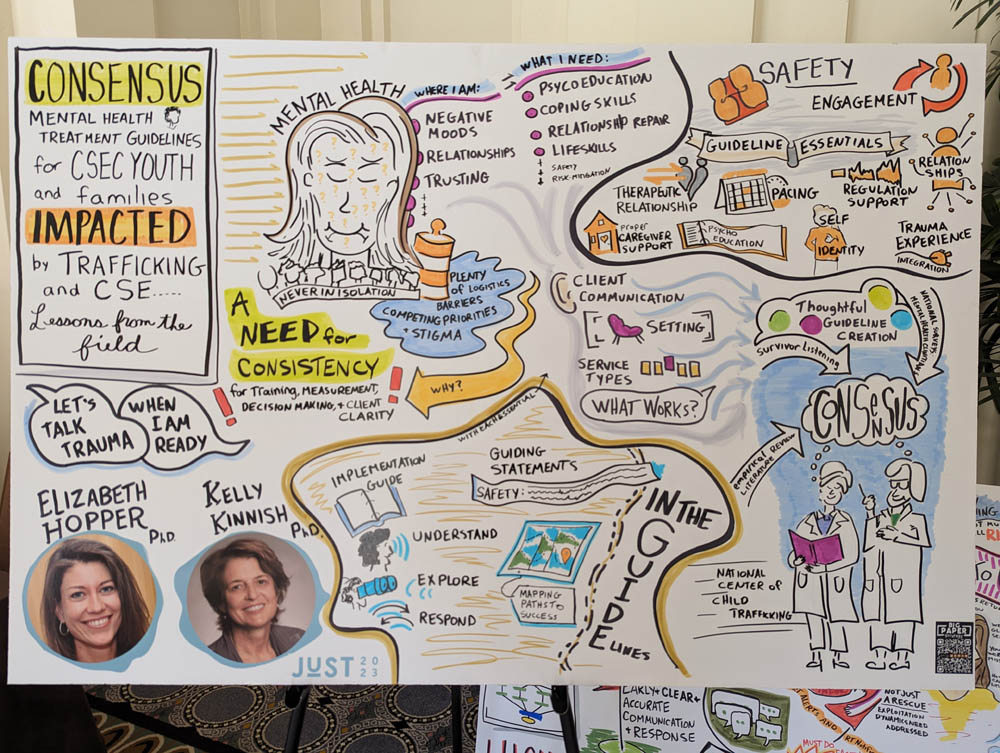 CONSENSUS
MENTAL HEALTH
TREATMENT GUIDELINES
for CSEC YOUTH
and families
IMPACTED
by TRAFFICKING
and CSE.....
Lessons from the
field
MENTAL HEALTH
NEVER IN ISOLATION
WHERE I AM:
NEGATIVE
MOODS
RELATIONSHIPS
TRUSTING
WHAT I NEED:
PSYCOEDUCATION
COPING SKILLS
RELATIONSHIP REPAIR
LIFESKILLS
SAFETY
RISK-MITIGATION
PLENTY
OF LOGISTICS
BARRIERS
COMPETING PRIORITIES
+ STIGMA
A
NEED for
CONSISTENCY
for TRAINING, MEASUREMENT,
DECISION MAKING, + CLIENT
CLARITY
WHY?
SAFETY
ENGAGEMENT
GUIDELINE ESSENTIALS
THERAPEUTIC
RELATIONSHIP
PACING
REGULATION
SUPPORT
RELATION
SHIPS
PROPER
CAREGIVER
SUPPORT
PSYCHO
EDUCATION
SELF
IDENTITY
TRAUMA
EXPERIENCE
INTEGRATION
CLIENT
COMMUNICATION
SETTING
SERVICE
TYPES
WHAT WORKS?
Thoughtful
GUIDELINE
CREATION
Survivor Listening
NATIONAL SURVEYS:
MENTAL HEALTH CLINICIANS
CONSENSUS
empirical REVIEW
LITERATURE
NATIONAL
CENTER of
CHILD
TRAFFICKING
LET'S
TALK
TRAUMA
WHEN
I AM
READY
ELIZABETH
HOPPER PhD.
KELLY
KINNISH PhD.
JUST 20
23
WITH EACH ESSENTIAL
IMPLEMENTATION
GUIDE
UNDERSTAND
EXPLORE
RESPOND
GUIDING
STATEMENTS
SAFETY:
MAPPING
PATHS TO
SUCCESS
IN THE
GUIDE
LINES
BIG
PAPER
EARLY + CLEAR +
ACCURATE
COMMUNICATION
+ RESPONSE
NOT JUST
A RESCUE
EXPLOITATION
DYNAMICS NEED
ADDRESSED
MUST DO